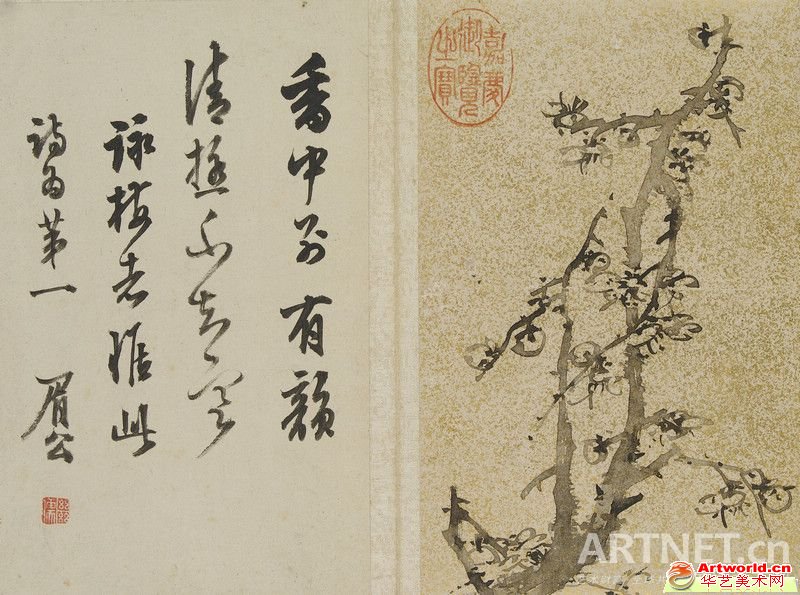 嘉慶
御覽
之寶
香中別有韻
清極不知寒
詠梅者推此
詩為第一 眉公
ARTNET.cn
Artworld.cn
华艺美术网